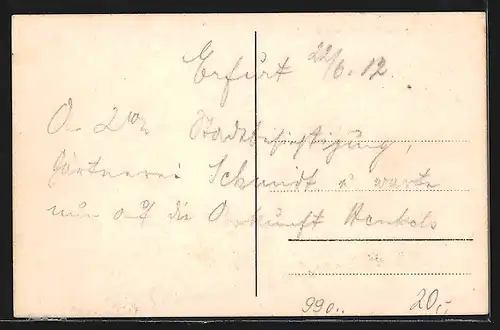 Erfurt 22/6.12.
Stadtbesichtigung,
Gärtnerei Schmidt u warte
nun auf die Ankunft Henkels
990..
20,-